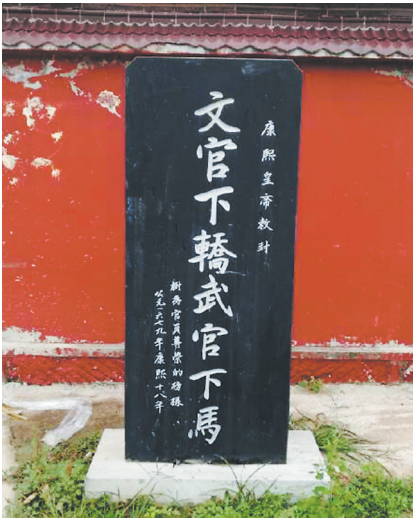 康熙皇帝敕封
文官下轎武官下馬
樹為官員尊榮的榜樣
公元一六七九年康熙十八年